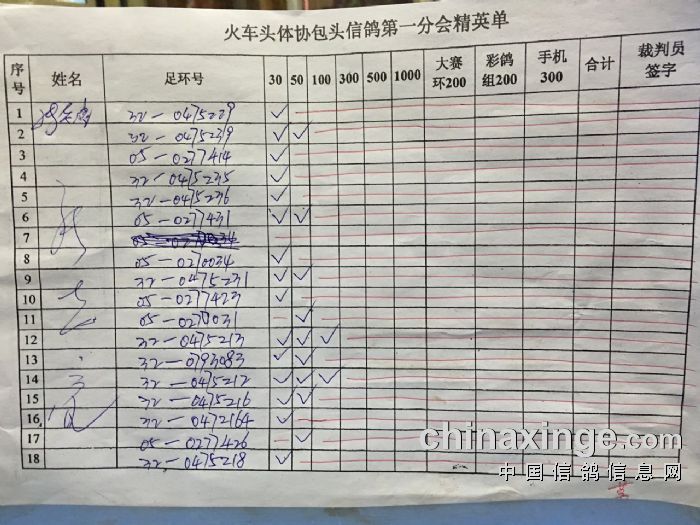 火车头体协包头信鸽第一分会精英单
序号 姓名 足环号 30 50 100 300 500 1000 大赛环200 彩鸽组200 手机300 合计 裁判员签字
1 32-0475229 ✓
2 32-0475239 ✓ ✓
3 05-0277414 ✓
4 32-0475235 ✓
5 32-0475236 ✓
6 05-0277431 ✓ ✓
7
8 05-0270034 ✓
9 32-0475231 ✓ ✓
10 05-0277423 ✓
11 05-0270031 ✓
12 32-0475213 ✓ ✓ ✓
13 32-0793083 ✓ ✓
14 32-0475212 ✓ ✓ ✓
15 32-0475216 ✓ ✓
16 32-0472164 ✓
17 05-0277426 ✓
18 32-0475218 ✓
chinaxinge.com
中国信鸽信息网